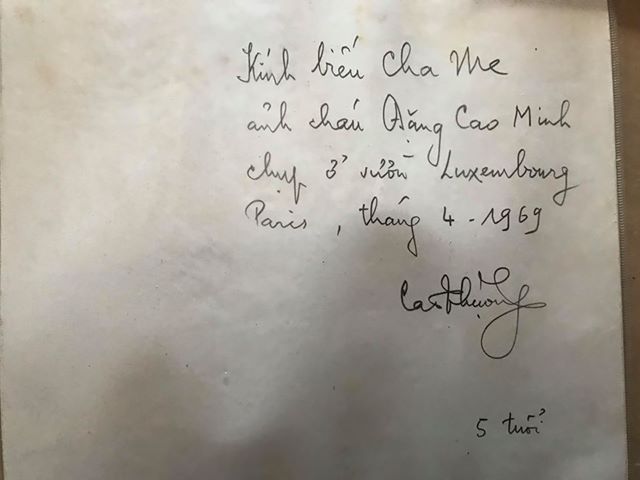 Kính biếu Cha Mẹ
ảnh cháu Đặng Cao Minh
chụp ở vườn Luxembourg
Paris, tháng 4-1969
5 tuổi